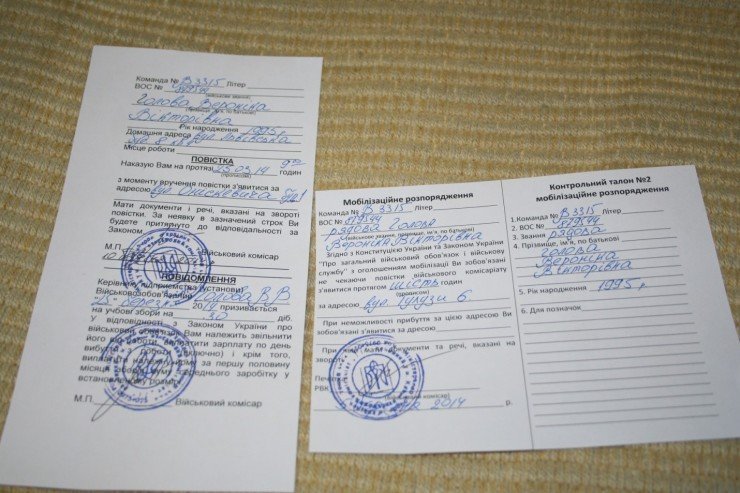 Команда № В 3315 Літер
ВОС № 879544
(військове звання)
Голова Вероніка
(прізвище, ім'я, по батькові)
Вікторівна
Рік народження 1995 р
Домашня адреса вул. Львівська
буд. 8 кв.
Місце роботи
ПОВІСТКА
Наказую Вам на протязі 25.03.14 9 00 годин
(прописом)
з моменту вручення повістки з'явитися за
адресою вул.
Мати документи і речі, вказані на звороті
повістки. За неявку в зазначений строк Ви
будете притягнуто до відповідальності за
Законом
М.П. Військовий комісар
ПОВІДОМЛЕННЯ
Керівнику підприємства (установи)
Військовозобов'язаний Голова В.В
"15" березня 2014 призивається
на учбові збори на 30 діб.
У відповідності з Законом України про
військовий обов'язок Вам належить звільнити
його від роботи, виплатити зарплату по день
вибуття з роботи (включно) і крім того,
виплатити належну йому за першу половину
місяця зборів суму середнього заробітку у
встановленому розмірі
М.П. Військовий комісар
Мобілізаційне розпорядження
Команда № В 3315 Літер
ВОС № 879544
рядова Голова
(військове звання, прізвище, ім'я, по батькові)
Вероніка Вікторівна
Згідно з Конституцією України та Законом України
"Про загальний військовий обов'язок і військову
службу" з оголошенням мобілізації Ви зобов'язані
не чекаючи повістки військового комісаріату
з'явитися протягом шість годин
(прописом)
за адресою вул. 6
При неможливості прибуття за цією адресою Ви
зобов'язані з'явитися за адресою
При собі мати документи та речі, вказані на
звороті
Печатка
РВК
(військовий комісар)
2014 р.
(підпис)
Контрольний талон №2
мобілізаційне розпорядження
1.Команда № В 3315
Літер
2. ВОС № 879544
3. Звання рядова
4. Прізвище, ім'я, по батькові
Голова
Вероніка
Вікторівна
5. Рік народження 1995 р
6. Для позначок